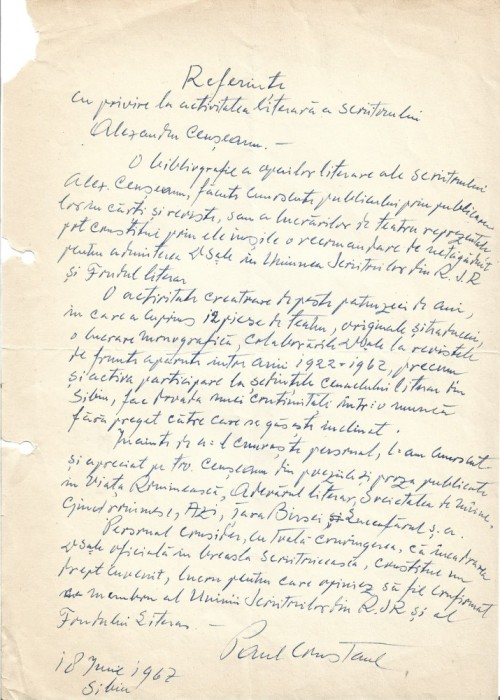 Referinte
cu privire la activitatea literară a scriitorului
Alexandru Ceușeanu. —
O bibliografie a operilor literare ale scriitorului
Alex. Ceușeanu, făcute cunoscute publicului prin publicarea
lor în cărți și reviste, sau a lucrărilor de teatru reprezentate
pot constitui prin ele însile o recomandare de netăgăduit
pentru admiterea D-sale în Uniunea Scriitorilor din R.P.R
și Fondul literar
O activitate creatoare de peste patruzeci de ani,
în care a cuprins 12 piese de teatru, originale și traduceri,
o lucrare monografică, colaborările D-sale la revistele
de frunte apărute între anii 1922-1962, precum
și activa participare la ședințele cenaclului literar din
Sibiu, fac dovada unei continuități într-o muncă
fără preget către care se găsește înclinat.
Înainte de a-l cunoaște personal, l-am cunoscut
și apreciat pe tov. Ceușeanu din poezia și proza publicate
în Viața Românească, Adevărul literar, Societatea de mâine,
Gînd românesc, Azi, Țara Bîrsei și Luceafărul ș.a.
Personal consider, cu toată convingerea, că încadrarea
D-sale oficială în breasla scriitoricească, constitue un
drept cuvenit, lucru pentru care opiniez să fie confirmat
membru al Uniunii Scriitorilor din R.P.R și al
Fondului Literar. —
Paul Constant
18 Iunie 1962
Sibiu